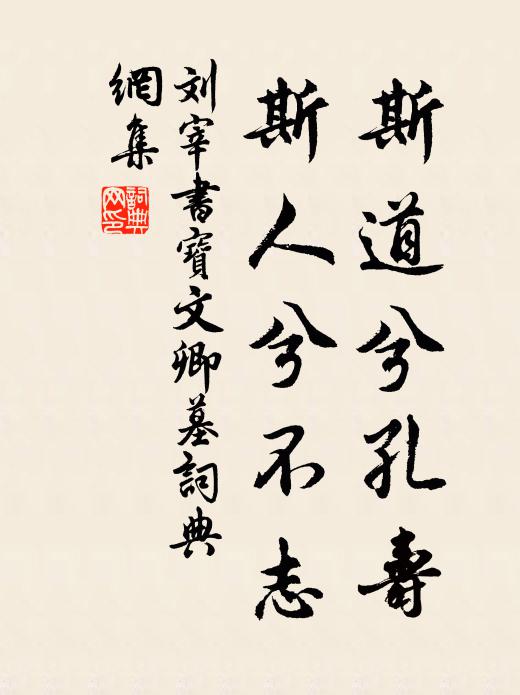 斯道兮孔壽
斯人兮不志
刘宰書寶文卿墓詞典
網集
詞典網印